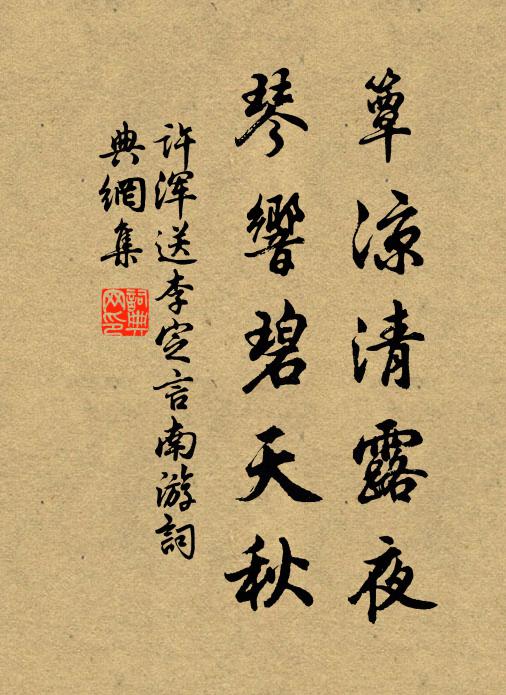 簟凉清露夜
琴響碧天秋
许浑送李定言南游詞
典網集
詞典网印